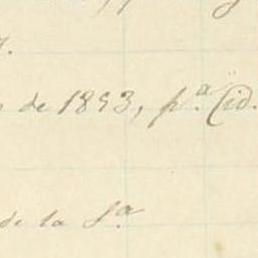 de 1893, p.ª Cid.
de la S.ª